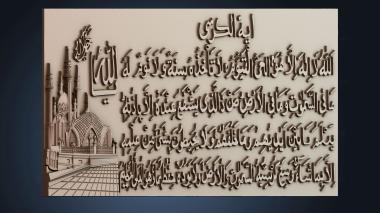 اية الكرسي
الله
الله لا إله إلا هو الحي القيوم لا تأخذه سنة ولا نوم له
ما في السموات وما في الأرض من ذا الذي يشفع عنده إلا بإذنه
يعلم ما بين أيديهم وما خلفهم ولا يحيطون بشيء من علمه
إلا بما شاء وسع كرسيه السموات والأرض ولا يؤده حفظهما وهو العلي العظيم